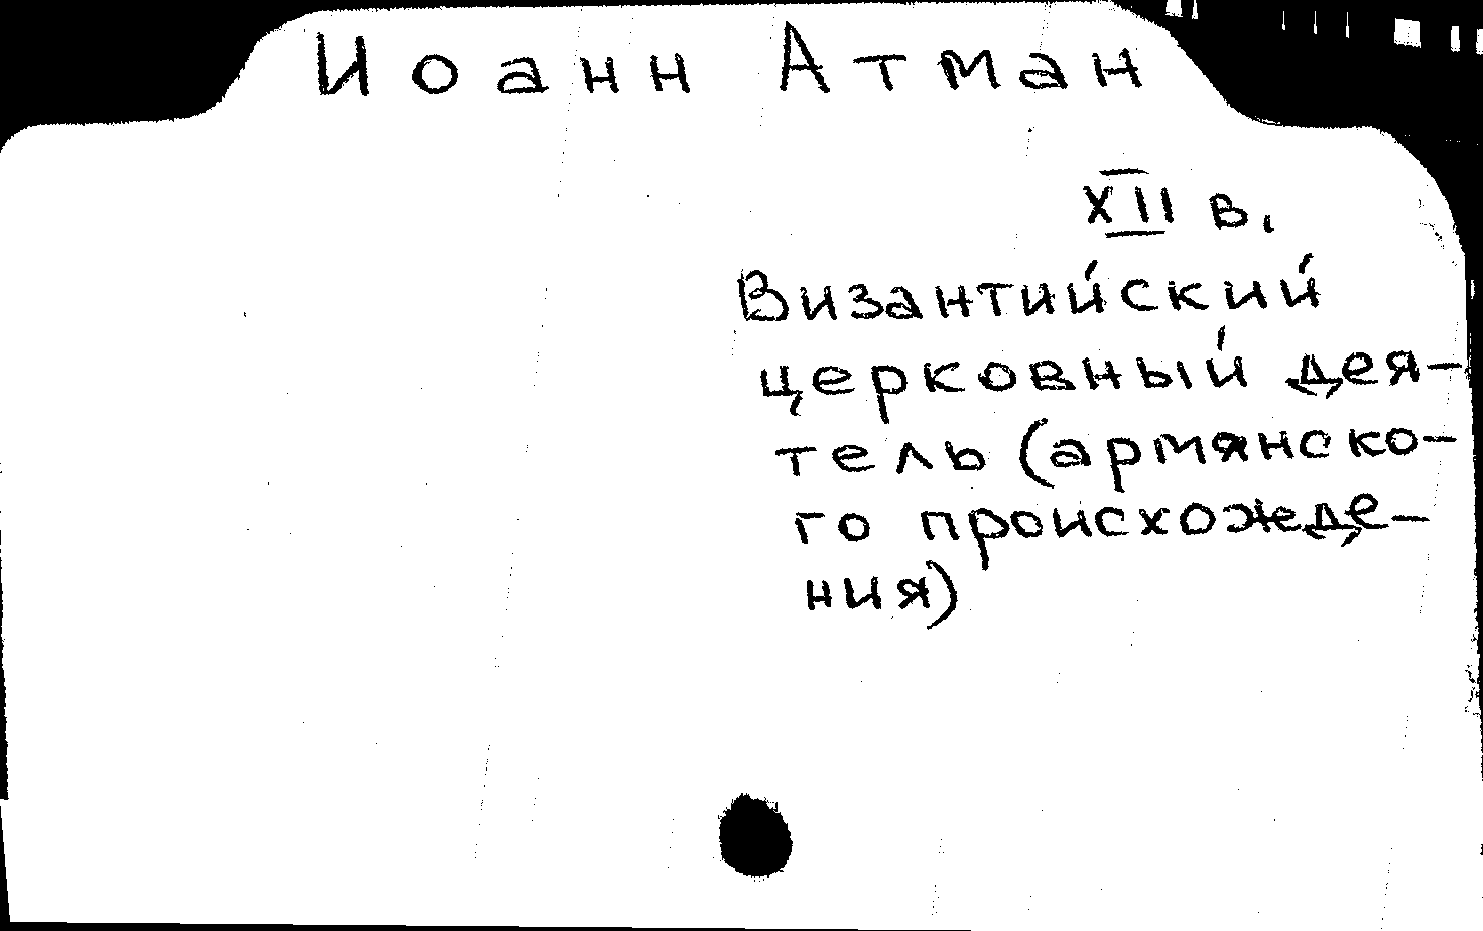 Иоанн Атман
XII в.
Византийский
церковный дея-
тель (армянско-
го происхожде-
ния)